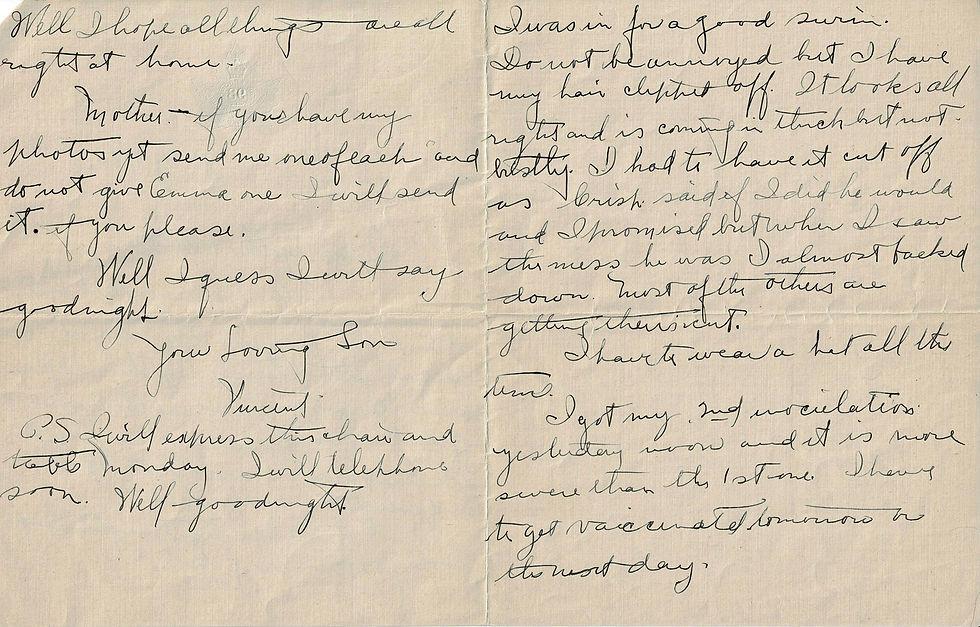 Well I hope all things are all
right at home.
Mother - if you have my
photos yet send me one of each and
do not give Emma one I will send
it. if you please.
Well I guess I will say
goodnight.
Your Loving Son
Vincent
P.S I will express this chair and
table Monday. I will telephone
soon. Well goodnight.
I was in for a good swim.
Do not be annoyed but I have
my hair clipped off. It looks all
right and is coming in thick but not
bristly. I had to have it cut off
as Crisp said if I did he would
and I promised but when I saw
the mess he was I almost backed
down. Most of the others are
getting theirs cut.
I have to wear a hat all the
time.
I got my 2nd inoculation
yesterday noon and it is more
severe than the 1st one. I have
to get vaiccinated tomorrow or
the next day.